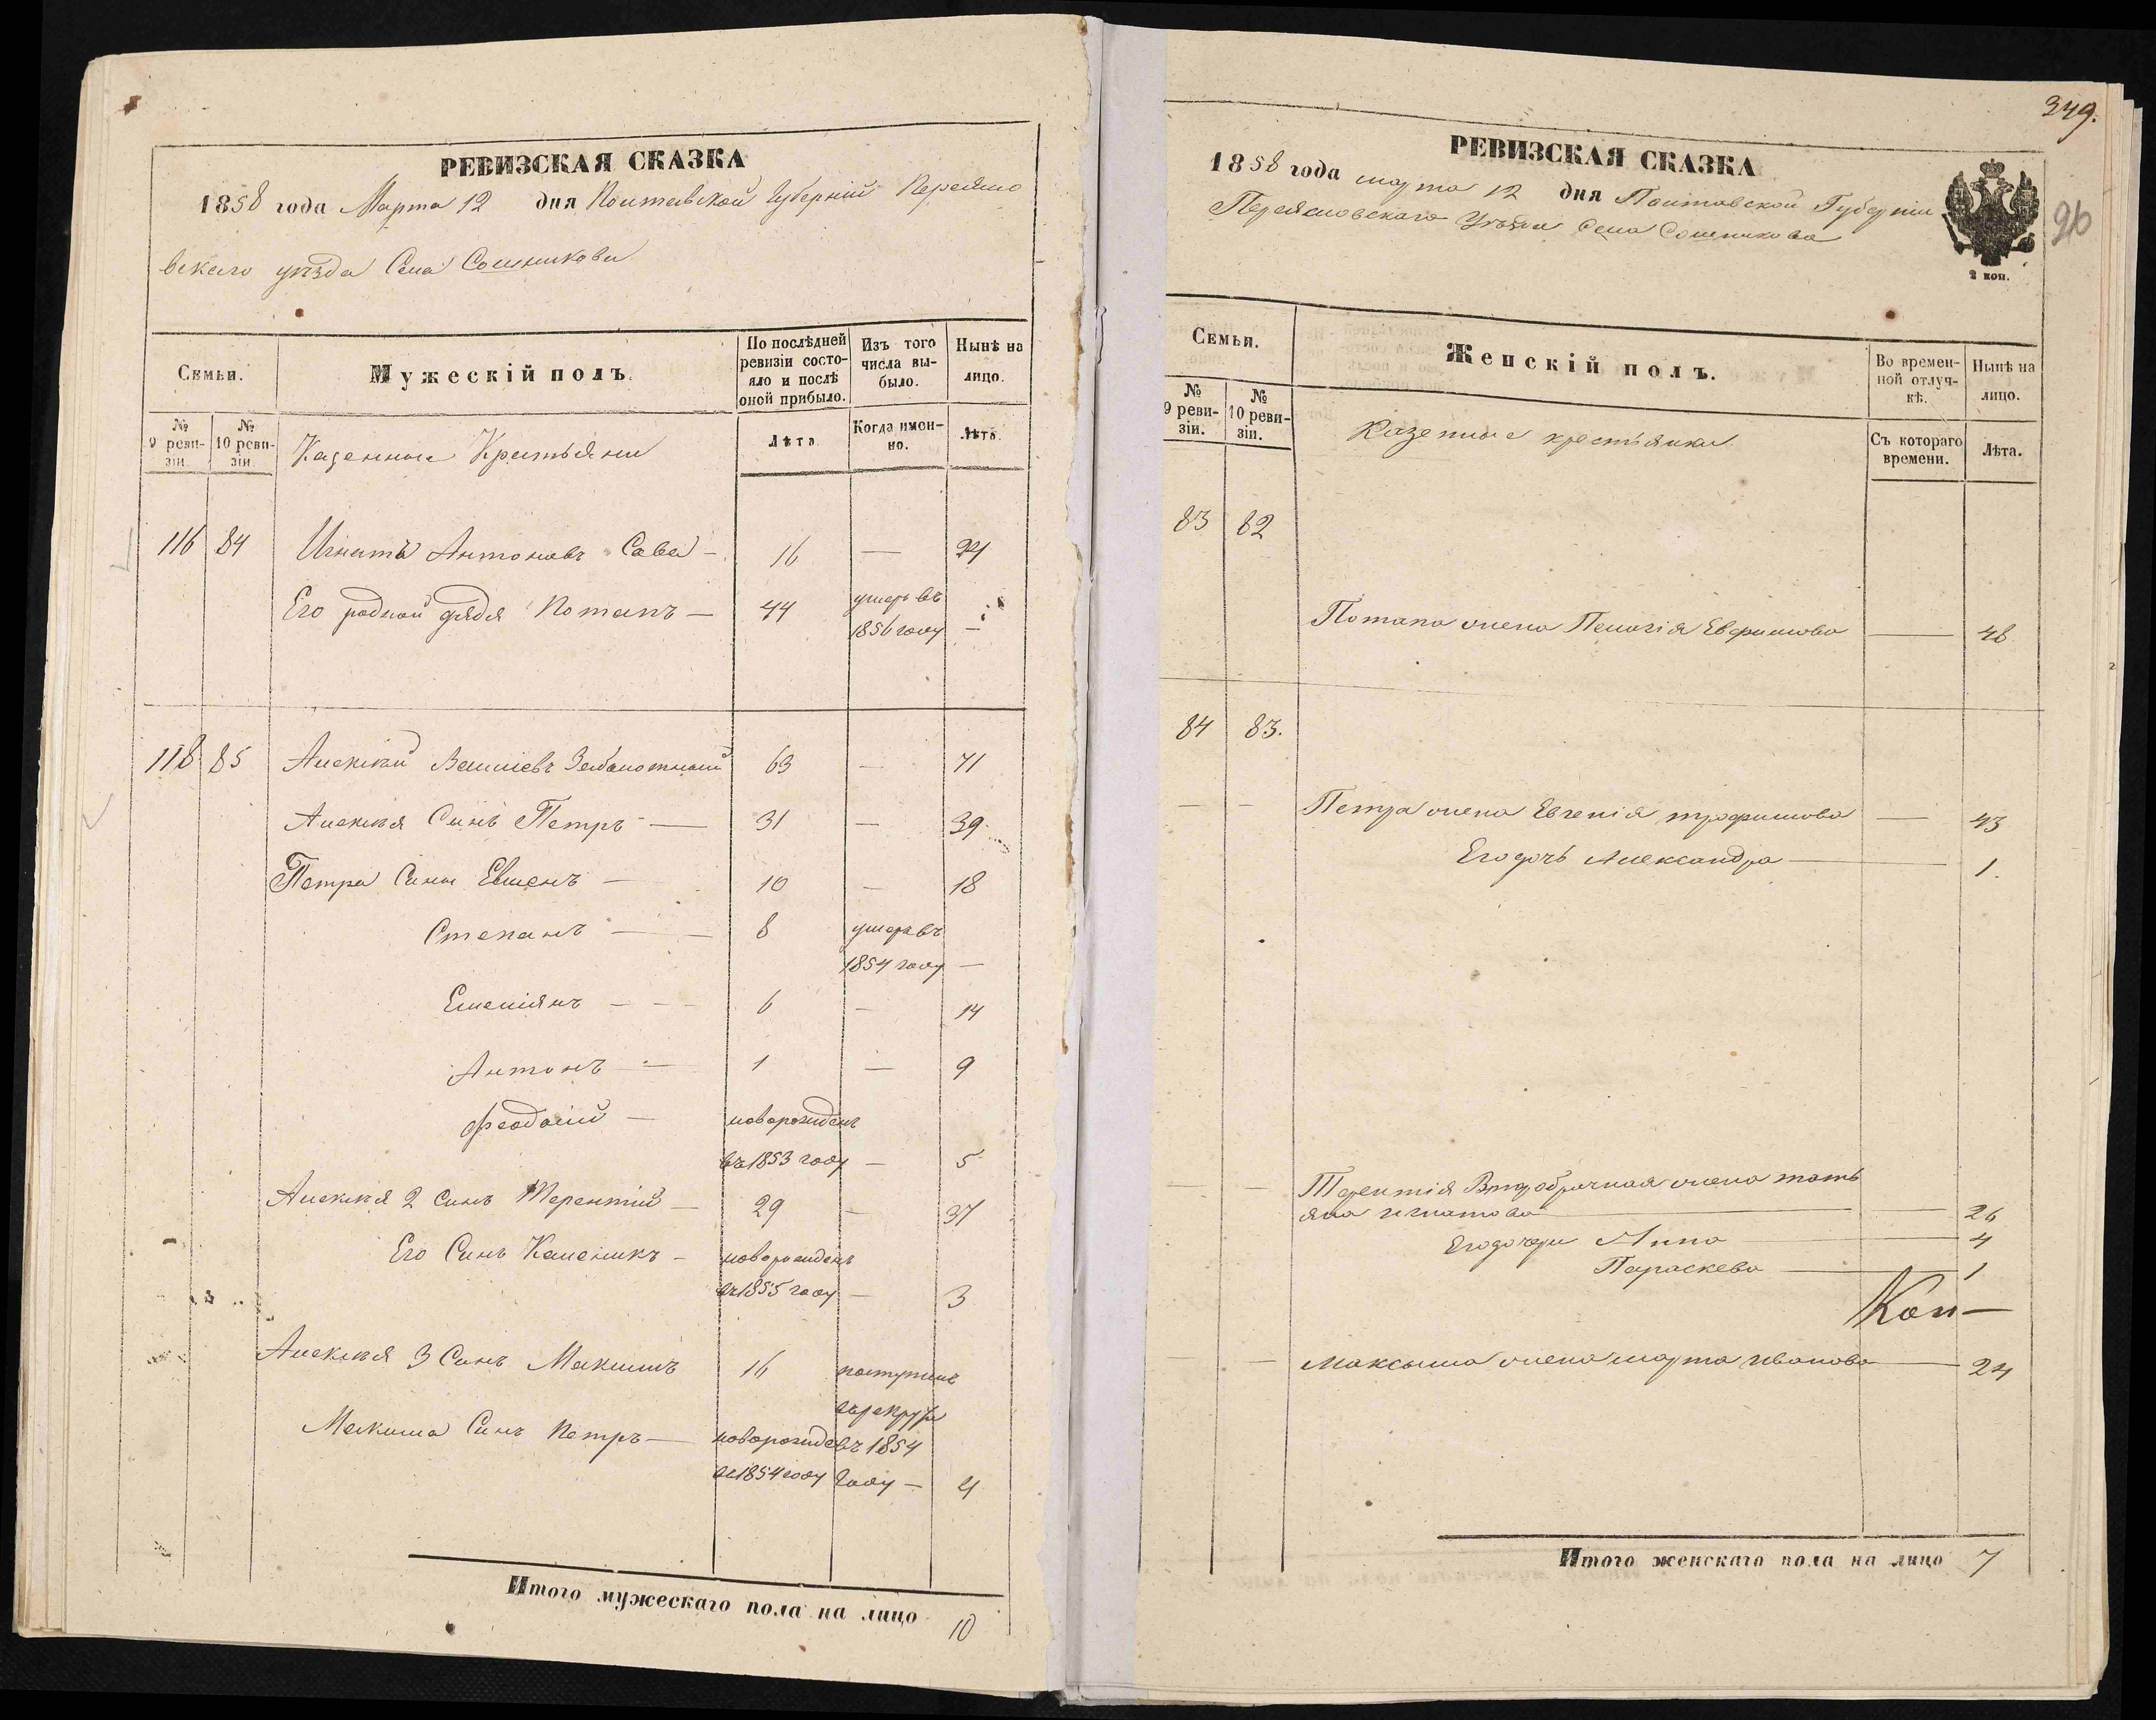 РЕВИЗСКАЯ СКАЗКА
1858 года Марта 12 дня Полтавской Губерніи Переясло
вскаго уѣзда Села Сошникова
Семьи.
Мужескій полъ.
По послѣдней ревизіи состояло и послѣ оной прибыло.
Изъ того числа выбыло.
Нынѣ на лицо.
№ 9 ревизіи.
№ 10 ревизіи.
Казенные Крестьяни
Лѣта
Когда именно.
Лѣта.
116 84 Игнатъ Антоновъ Сава — 16 — 24
Его родной дядя Потапъ — 44 умеръ въ
1856 году —
118 85 Алексѣй Василіевъ Заболотный 63 — 71
Алексѣя Синъ Петръ — 31 — 39
Петра Сины Евменъ — 10 — 18
Степанъ — 8 умеръ въ
1854 году —
Емеліянъ — 6 — 14
Антонъ — 1 — 9
Феодосій — новорожденъ
въ 1853 году — 5
Алексѣя 2 синъ Терентій — 29 — 37
Его Синъ Калѣникъ — новорожденъ
въ 1855 году — 3
Алексѣя 3 Синъ Максимъ 16 поступилъ
въ рекруты
Максима Синъ Петръ — новорожде въ 1854
въ 1854 году году — 4
Итого мужескаго пола на лицо 10
349.
96
РЕВИЗСКАЯ СКАЗКА
1858 года марта 12 дня Полтавской Губерніи
Переясловскаго Уѣзда Села Сошникова
2 коп.
Семьи.
Женскій полъ.
Во временной отлучкѣ.
Нынѣ на лицо.
№ 9 ревизіи.
№ 10 ревизіи.
Казенные крестьянки
Съ котораго времени.
Лѣта.
83 82
Потапа жена Пелагія Ефимова — 48
84 83.
— — Петра жена Евгенія трофимова — 43
Его дочь Александра — 1.
— — Терентія Второбрачная жена тать
яна игнатова — 26
Его дочери Анна — 4
Параскева — 1
— Максыма жена марта иванова — 24
Итого женскаго пола на лицо 7